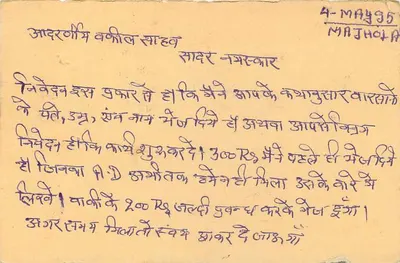 4-MAY95
MAJHOLA
आदरणीय वकील साहब
सादर नमस्कार
निवेदन इस प्रकार से है कि मैंने आपके कथानुसार वारसानों
के पते, उम्र, एवंम नाम भेज दिये हैं अथवा आपसे विनम्र
निवेदन है कि कार्य शुरू कर दें। 300 Rs मैंने पहले ही भेज दिये
है। जिनका A.D अभी तक हमें नहीं मिला उसके बारे में
लिखें। बाकी के 200 Rs जल्दी प्रबन्ध करके भेज दूँगा।
अगर समय मिला तो स्वंय आकर दे जाऊगाँ